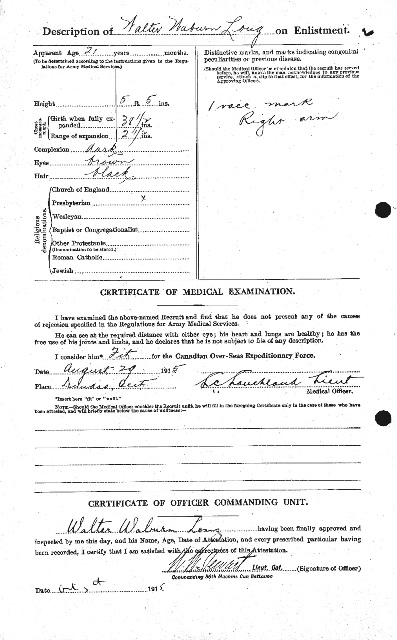 Description of Walter Waburn Long on Enlistment.
Apparent Age 21 years months.
(To be determined according to the instructions given in the Regulations for Army Medical Services.)
Distinctive marks, and marks indicating congenital peculiarities or previous disease.
(Should the Medical Officer be of opinion that the recruit has served before, he will, unless the man acknowledges to any previous service, attach a slip to that effect, for the information of the Approving Officer.)
1 vacc. mark
Right arm
Height 5 ft. 5 ins.
Girth when fully expanded ins.
Range of expansion ins.
Complexion dark
Eyes brown
Hair black
Religious denominations.
Church of England
Presbyterian x
Wesleyan
Baptist or Congregationalist
Other Protestants
(Denomination to be stated.)
Roman Catholic
Jewish
CERTIFICATE OF MEDICAL EXAMINATION.
I have examined the above-named Recruit and find that he does not present any of the causes
of rejection specified in the Regulations for Army Medical Services.
He can see at the required distance with either eye; his heart and lungs are healthy; he has the
free use of his joints and limbs, and he declares that he is not subject to fits of any description.
I consider him* Fit for the Canadian Over-Seas Expeditionary Force.
Date August 29 1915
Place Dundas Ont
Lieut
Medical Officer.
*Insert here "fit" or "unfit."
NOTE.—Should the Medical Officer consider the Recruit unfit, he will fill in the foregoing Certificate only in the case of those who have
been attested, and will briefly state below the cause of unfitness:—
CERTIFICATE OF OFFICER COMMANDING UNIT.
Walter Waburn Long having been finally approved and
inspected by me this day, and his Name, Age, Date of Attestation, and every prescribed particular having
been recorded, I certify that I am satisfied with the correctness of this Attestation.
Lieut. Col. (Signature of Officer)
Commanding 86th Machine Gun Battalion
Date 1915